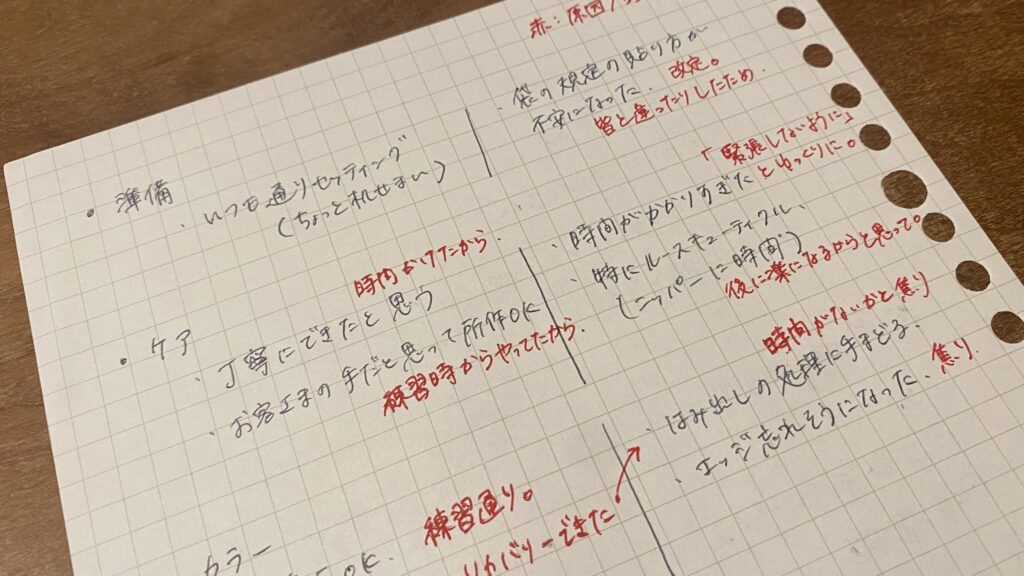 赤:原因
・袋の規定の貼り方が
不安になった. 改定。
皆と違ったりしたため.
・準備
・いつも通りセッティング
(ちょっと机せまい)
「緊張しないように」
とゆっくりに。
・時間がかかりすぎた
・特にルースキューティクル、
(ニッパーに時間)
後に楽になるからと思って。
時間かけたから.
・ケア
・丁寧にできたと思う
・お客さまの手だと思って所作OK
練習時からやってたから.
時間がないかと焦り
・はみ出しの処理に手まどる.
・エッジ忘れそうになった. 焦り.
カラー
OK.
練習通り。
リカバリーできた